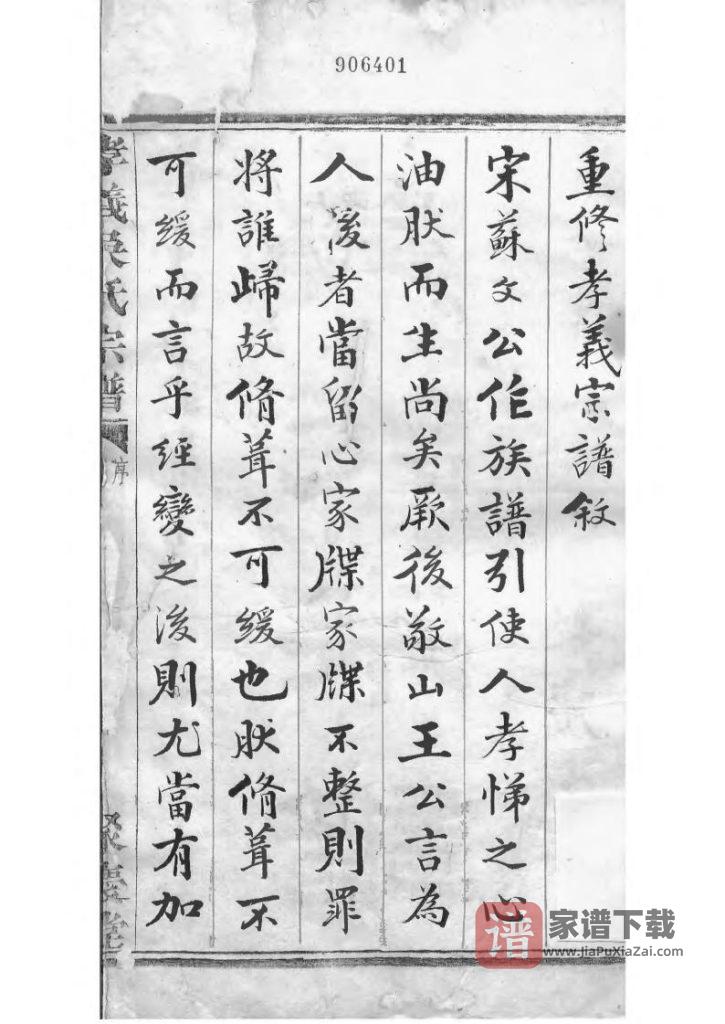 906401
重修孝義宗譜敘
宋蘇文公作族譜引使人孝悌之心
油肰而生尚矣厥後敬山王公言為
人後者當留心家牒家牒不整則罪
將誰歸故脩葺不可緩也肰脩葺不
可緩而言乎經變之後則尤當有加
孝義吳氏宗譜
序
聚慶堂
谱 家谱下载
www.JiaPuXiaZai.com